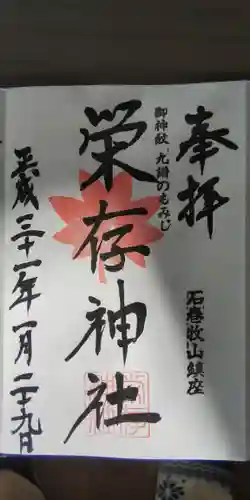 奉拝
石巻牧山鎮座
御神紋、九謡のもみじ
栄存神社
平成三十一年一月二十九日